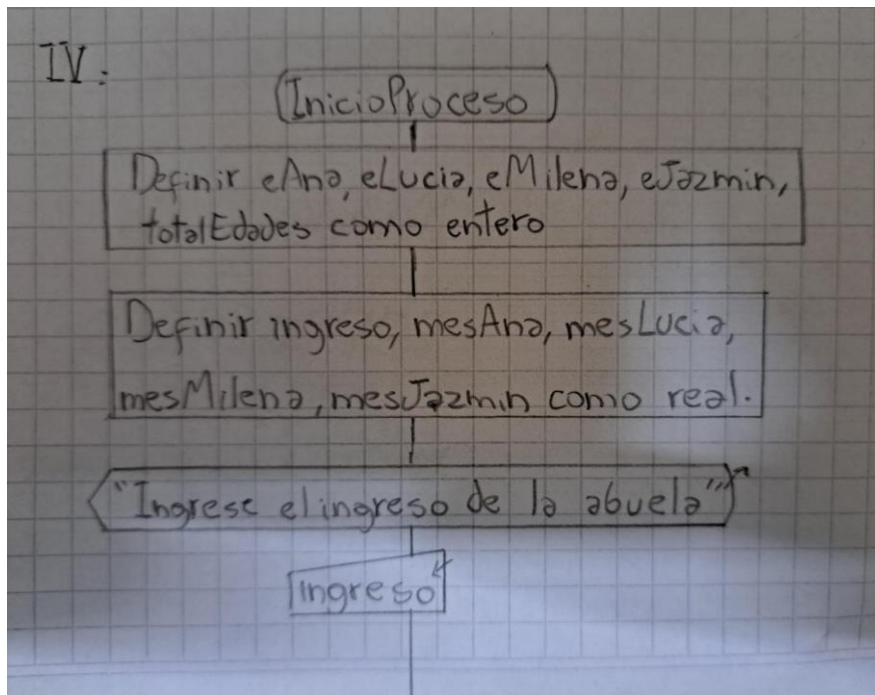 IV:
InicioProceso
Definir eAna, eLucia, eMilena, eJazmin,
totalEdades como entero
Definir ingreso, mesAna, mesLucia,
mesMilena, mesJazmin como real.
"Ingrese el ingreso de la abuela"
Ingreso